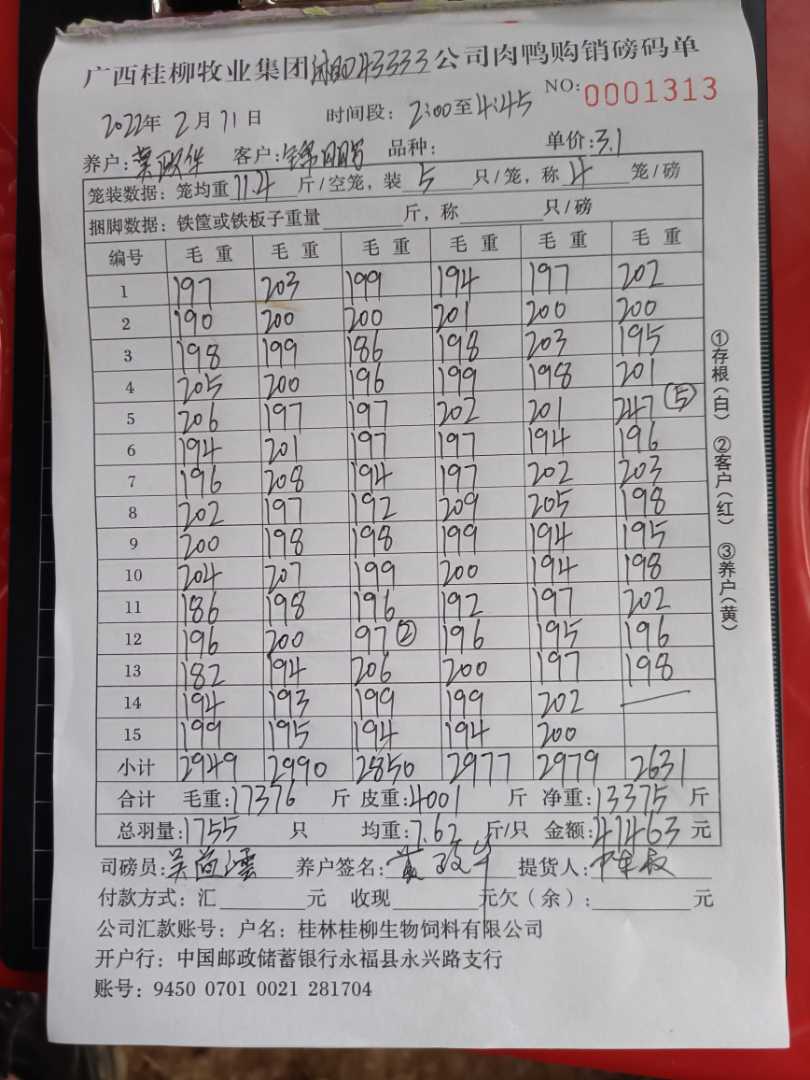 广西桂柳牧业集团 43333公司肉鸭购销磅码单
NO:0001313
2022年2月21日 时间段:2:00至4:45
养户: 客户: 品种: 单价:3.1
笼装数据:笼均重11.4斤/空笼,装5只/笼,称4笼/磅
捆脚数据:铁筐或铁板子重量 斤,称 只/磅
编号 毛重 毛重 毛重 毛重 毛重 毛重
1 197 203 199 194 197 202
2 190 200 200 201 200 200
3 198 199 186 198 203 195
4 205 200 196 199 198 201
5 206 197 197 202 201 247⑤
6 194 201 197 197 194 196
7 196 208 194 197 202 203
8 202 197 192 209 205 198
9 200 198 198 199 194 195
10 204 207 199 200 194 198
11 186 198 196 192 197 202
12 196 200 97② 196 195 196
13 182 194 206 200 197 198
14 194 193 199 199 202 —
15 199 195 194 194 200
小计 2949 2990 2850 2977 2979 2631
合计 毛重:17376斤 皮重:4001斤 净重:13375斤
总羽量:1755只 均重:7.62斤/只 金额:41463元
司磅员: 养户签名: 提货人:
付款方式:汇 元 收现 元欠(余): 元
公司汇款账号:户名:桂林桂柳生物饲料有限公司
开户行:中国邮政储蓄银行永福县永兴路支行
账号:9450 0701 0021 281704
①存根(白) ②客户(红) ③养户(黄)